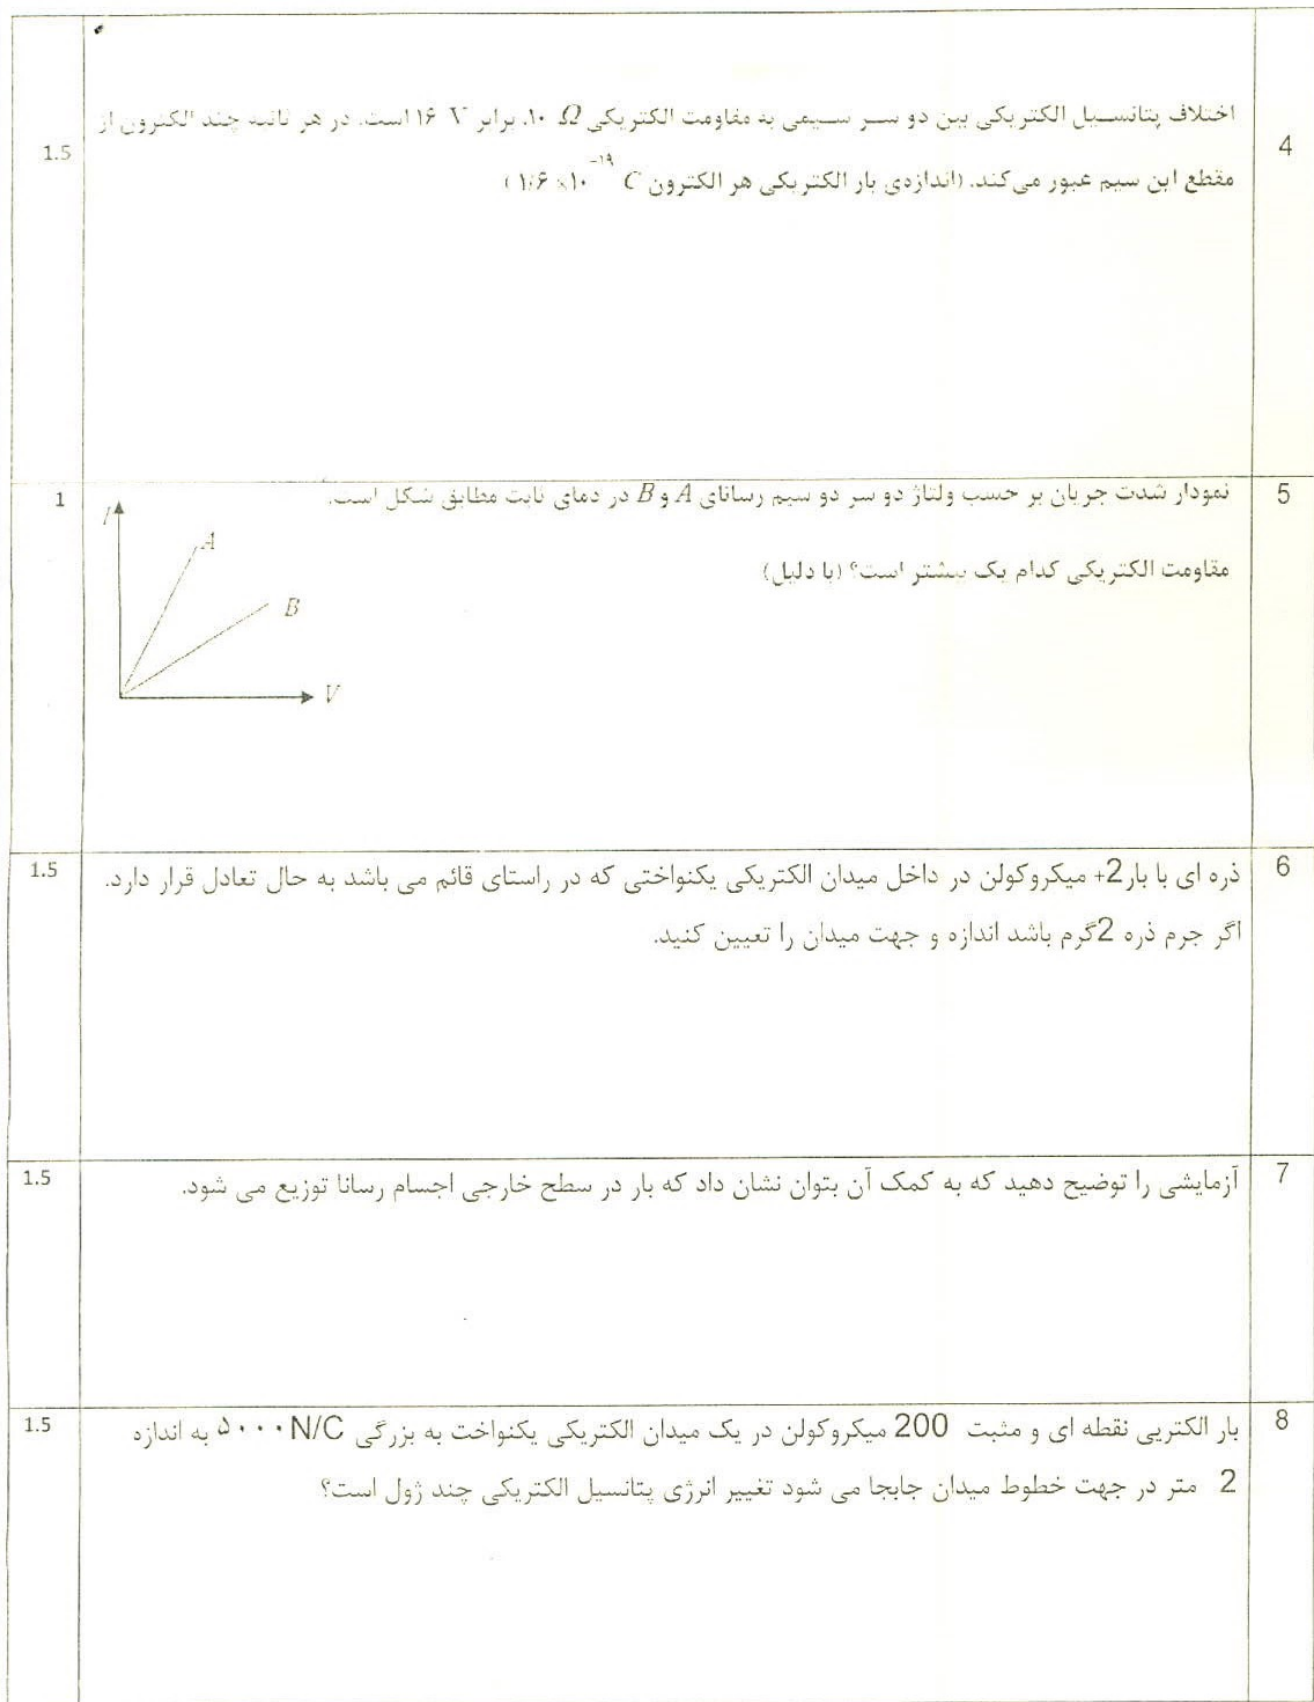 4
اختلاف پتانسیل الکتریکی بین دو سر سیمی به مقاومت الکتریکی ۱۰ Ω، برابر ۱۶ V است. در هر ثانیه چند الکترون از
1.5
مقطع این سیم عبور می‌کند. (اندازه‌ی بار الکتریکی هر الکترون ۱/۶ × ۱۰^-۱۹ C)
5
نمودار شدت جریان بر حسب ولتاژ دو سر دو سیم رسانای A و B در دمای ثابت مطابق شکل است.
1
مقاومت الکتریکی کدام یک بیشتر است؟ (با دلیل)
I
A
B
V
6
ذره ای با بار 2+ میکروکولن در داخل میدان الکتریکی یکنواختی که در راستای قائم می باشد به حال تعادل قرار دارد.
1.5
اگر جرم ذره 2گرم باشد اندازه و جهت میدان را تعیین کنید.
7
آزمایشی را توضیح دهید که به کمک آن بتوان نشان داد که بار در سطح خارجی اجسام رسانا توزیع می شود.
1.5
8
بار الکتریی نقطه ای و مثبت 200 میکروکولن در یک میدان الکتریکی یکنواخت به بزرگی ۵۰۰۰ N/C به اندازه
1.5
2 متر در جهت خطوط میدان جابجا می شود تغییر انرژی پتانسیل الکتریکی چند ژول است؟